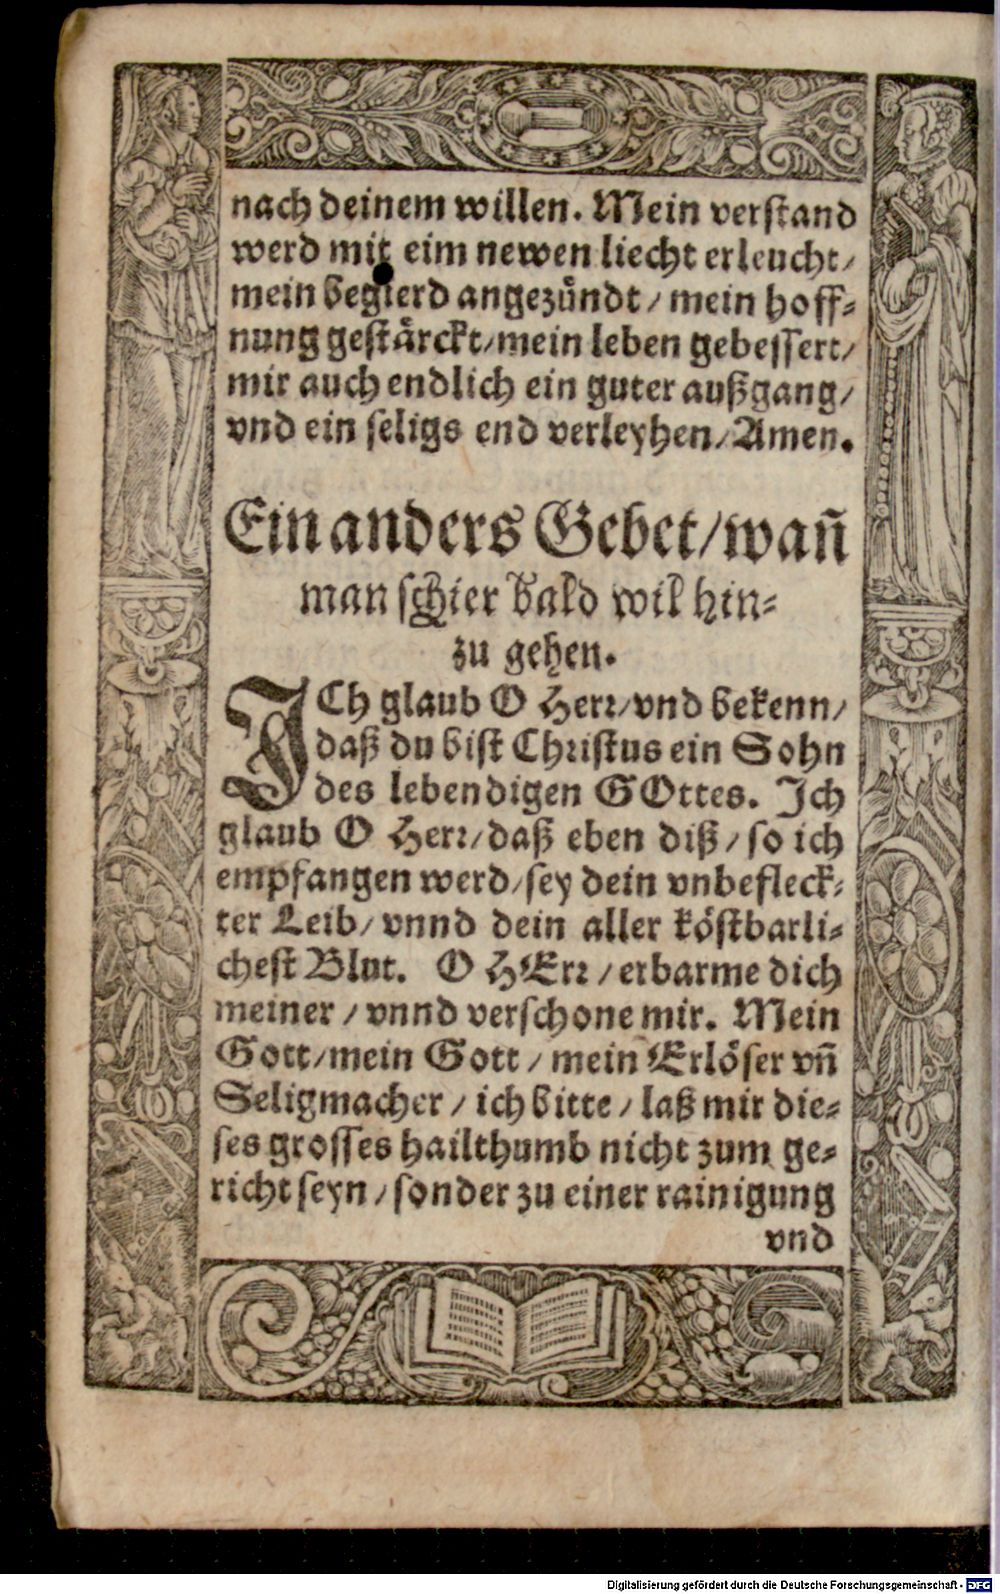 nach deinem willen. Mein verstand
werd mit eim newen liecht erleucht/
mein begierd angezuͤndt / mein hoff-
nung gestaͤrckt/mein leben gebessert/
mir auch endlich ein guter außgang/
vnd ein seligs end verleyhen/Amen.
Ein anders Gebet/wañ
man schier bald wil hin-
zu gehen.
ICh glaub O Herr/vnd bekenn/
daß du bist Christus ein Sohn
des lebendigen GOttes. Ich
glaub O Herr/daß eben diß/so ich
empfangen werd/sey dein vnbefleck-
ter Leib/vnnd dein aller koͤstbarli-
chest Blut. O HErr/erbarme dich
meiner / vnnd verschone mir. Mein
Gott/mein Gott / mein Erloͤser vñ
Seligmacher / ich bitte / laß mir die-
ses grosses hailthumb nicht zum ge-
richt seyn / sonder zu einer rainigung
vnd
Digitalisierung gefördert durch die Deutsche Forschungsgemeinschaft - DFG